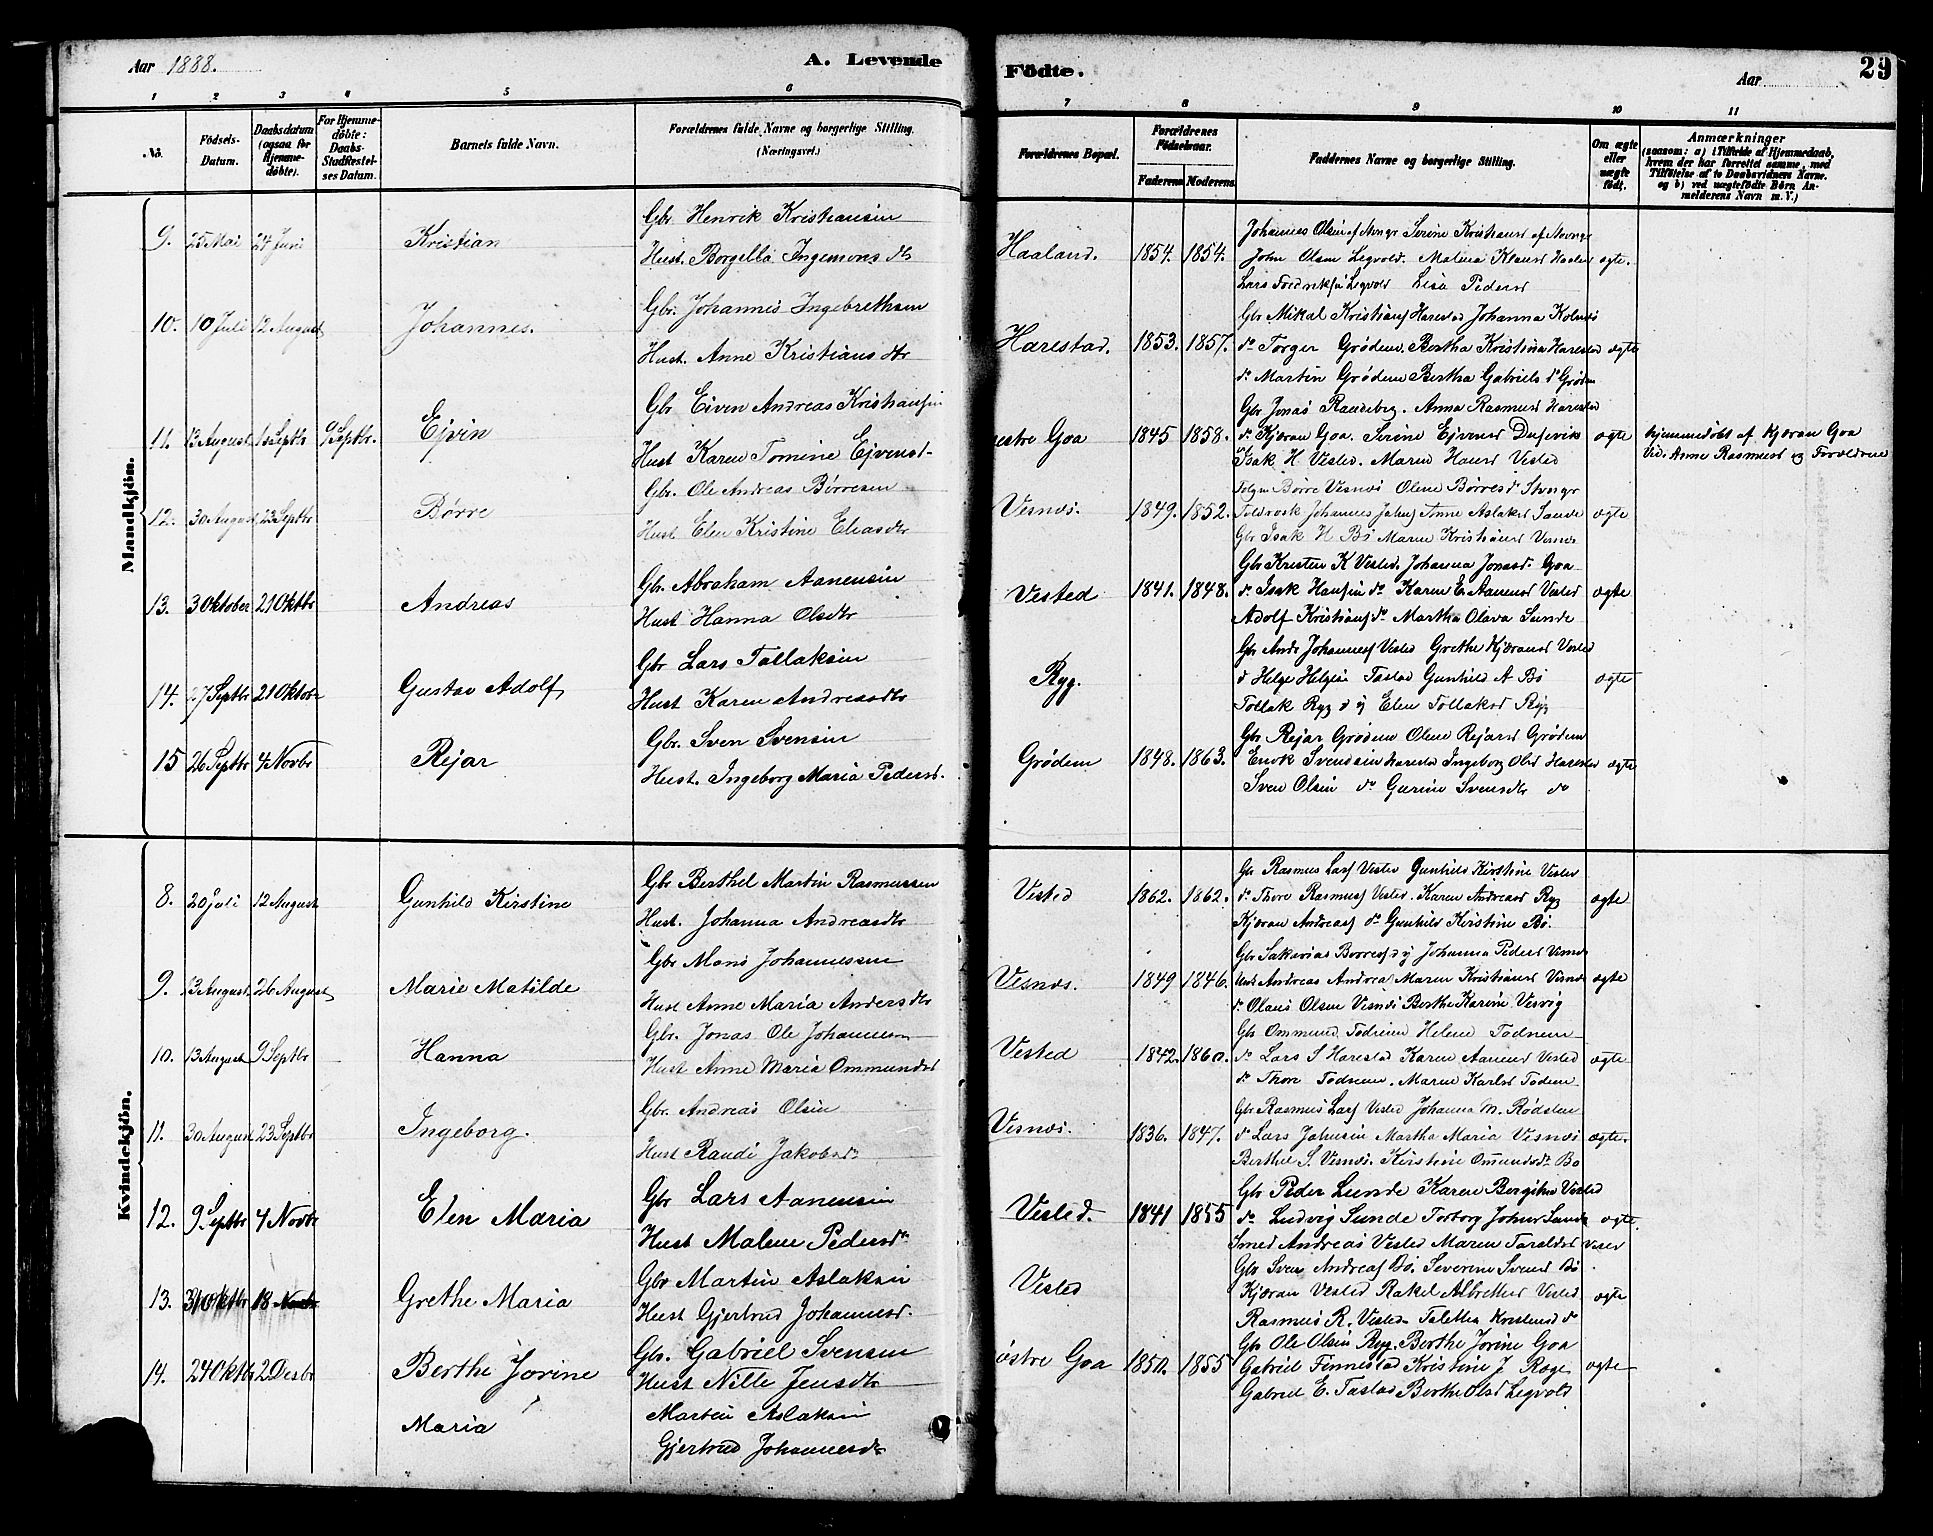 Aar 1888.
A. Levende
Födte.
Aar
29
1 2 3 4 5 6 7 8 9 10 11
No.
Födsels-
Datum.
Daabsdatum
(ogsaa for
Hjemme-
döbte).
For Hjemme-
döbte:
Daabs-
Stadfæstel-
ses Datum.
Barnets fulde Navn.
Forældrenes fulde Navne og borgerlige Stilling.
(Næringsvei.)
Forældrenes Bopæl.
Forældrenes
Födselsaar.
Faderens. Moderens.
Faddernes Navne og borgerlige Stilling.
Om ægte
eller
uægte
födt.
Anmærkninger
(saasom: a) i Tilfælde af Hjemmedaab,
hvem der har forrettet samme, med
Tilföielse af to Daabsvidners Navne.
og b) ved uægtefödte Börn An-
melderens Navn m. V.)
Mandkjön.
9. 25 Mai 24 Juni Kristian
Gbr. Henrik Kristiansen
Hust. Borgella Ingemons dtr
Haaland. 1854. 1854.
Johannes Olsen af Stvngr Serine Kristiansd af Stvngr
John Olsen Legvold. Malena Klausd Haaland
Lars Fredriksen Legvold Lisa Pedersd
ægte.
10. 10 Juli 12 August Johannes.
Gbr. Johannes Ingebrethsen
Hust. Anne Kristians dtr
Harestad. 1853. 1857.
Gbr Mikal Kristians Harestad Johanna Kolnæs
do Torger Grødem. Bertha Kristina Harestad
do Martin Grødem Bertha Gabriels d Grødem
ægte
11. 13 August 1 Septbr 9 Septbr. Ejvin
Gbr Eiven Andreas Kristiansen
Hust Karen Tomine Ejvensd
estre Goa 1845 1858.
Gbr Jonas Randeberg. Anna Rasmusd Harestad
do Kjøran Goa. Serine Ejvensd Dusevik
Isak H Vested. Maren Hansd Vested
ægte
hjemmedøbt af Kjøran Goa
Vid. Anne Rasmusd og Forældrene
12. 30 August 23 Septbr Børre
Gbr. Ole Andreas Børresen
Hust Elen Kristine Eliasdtr
Visnæs. 1849. 1852.
Børre Visnæs Olene Børresd Stvngr
Johannes Anne Aslaksd Sande
Gbr Isak H. Bø Maren Kristiansd Visnæs
ægte
13. 3 Oktober 21 Oktbr Andreas
Gbr. Abraham Aanensen
Hust Hanna Olsdtr
Vested 1841. 1848.
Gbr Kristen K Vested. Johanna Jonasd. Goa
do Isak Hansen do Karen E. Aanensd Vested
Adolf Kristians do Martha Olava Sunde
ægte
14. 27 Septbr 21 Oktobr Gustav Adolf
Gbr Lars Tollaksen
Hust Karen Andreasdtr
Ryg.
Gbr Andr Johannes Vested Grethe Kjøransd Vested
d Helge Helgesen Tastad Gunhild A Bø
Tollak Ryg d y Elen Tollaksd Ryg
ægte
15 26 Septbr 4 Novbr Rejar
Gbr. Sven Svensen
Hust. Ingeborg Maria Pedersd.
Grødem 1848. 1863.
Gbr Rejar Grødem Olene Rejarsd Grødem
Enok Svendsen Harestad Ingeborg Olsd Harestad
Sven Olsen do Gurine Svensdtr do
ægte
Kvindekjön.
8. 20 Juli 12 August Gunhild Kirstine
Gbr Berthel Martin Rasmussen
Hust. Johanna Andreasdtr
Vested 1862. 1862.
Gbr Rasmus Lars Vested Gunhild Kirstine Vested
do Thore Rasmus Vested. Karen Andreasd Ryg
Kjøran Andreas do Gunhild Kirstine Bø.
ægte
9. 13 August 26 August Marie Matilde
Gbr Mons Johannessen
Hust Anne Maria Anders dtr
Visnæs. 1849 1846.
Gbr Sakarias Børres d y Johanna Pedersd Visnæs
Andreas Andreas Maren Kristiansd Visnæs
do Olaus Olsen Visnæs Berthe Karine Vesvig
ægte
10. 13 August 9 Septbr Hanna
Gbr. Jonas Ole Johannessen
Hust Anne Maria Ommundsd
Vested 1842. 1860.
Gbr Ommund Todneim Helene Todnem
do Lars S Harestad Karen Aanensd Vested
do Thore Todneim. Maren Karlsd Todem
ægte
11. 30 August 23 Septbr Ingeborg.
Gbr. Andreas Olsen
Hust Randi Jakobsd
Visnæs. 1836. 1847.
Gbr Rasmus Lars Vested Johanna M. Rødslen
do Lars Johnsen Martha Maria Visnæs
Berthel S. Visnæs. Kirstine Omundsdtr Bø
ægte.
12. 9 Septbr 4 Novbr Elen Maria
Gbr Lars Aanensen
Hust Malene Pedersdtr
Vested. 1841 1855
Gbr Peder Sunde Karen Bergithe Vested
do Ludvig Sunde Torborg Johnsd Sunde
Smed Andreas Vested Maren Taraldsd Vested
ægte.
13. 31 Oktbr 18 Novbr Grethe Maria
Gbr Martin Aslaksen
Hust Gjertrud Johannesd.
Vested
Gbr Sven Andreas Bø. Severine Svensd Bø
Kjøran Vested Rakel Albrettsd Vested
Rasmus R. Vested. Taletta Kristensd do
ægte
14. 24 Oktbr 2 Desbr Berthe Jorine
Gbr. Gabriel Svensen
Hust Nille Jensdtr
østre Goa 1850. 1855
Gbr Ole Olsen Ryg. Berthe Jorine Goa
Gabriel Finnestad Kristine J Røge
Gabriel E. Tastad Berthe Olsd Legvold
ægte
Maria
Martin Aslaksen
Gjertrud Johannesdtr